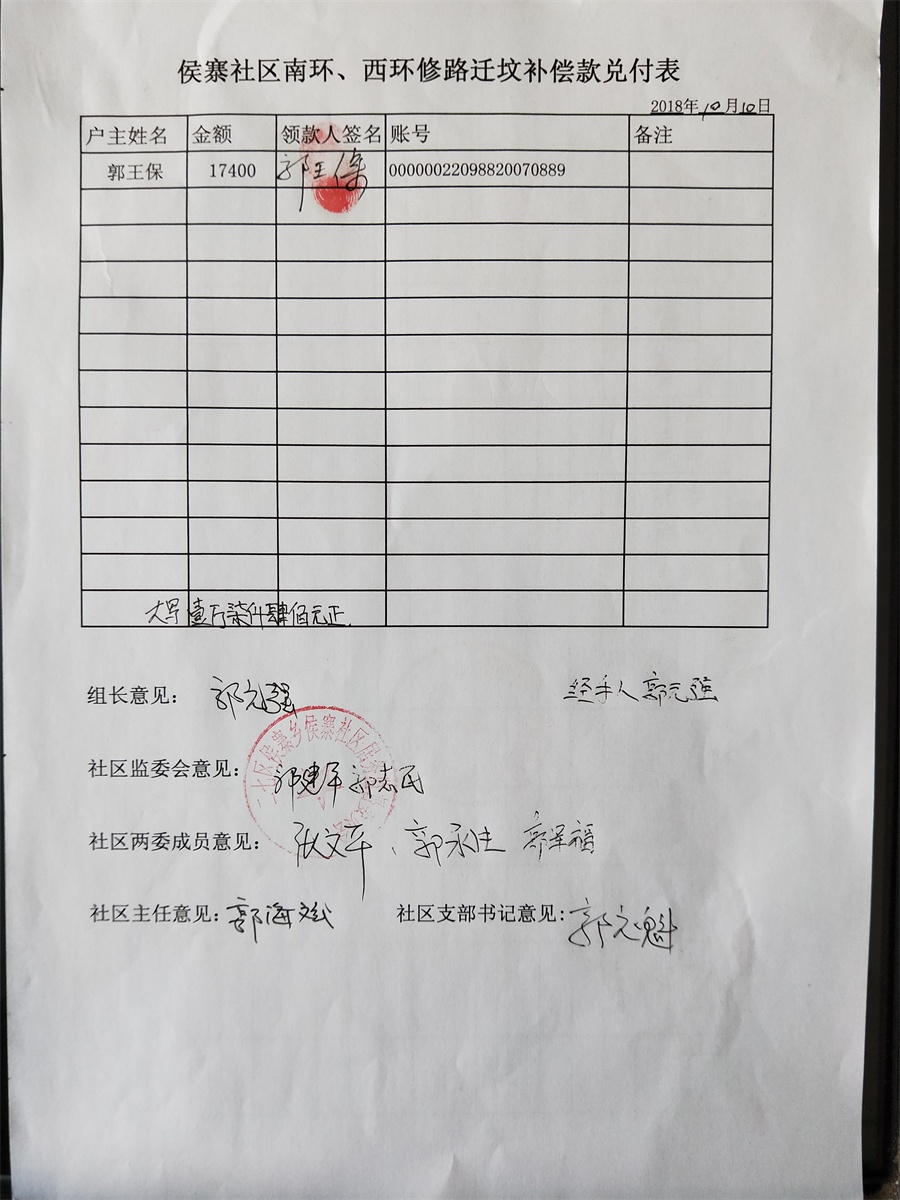 侯寨社区南环、西环修路迁坟补偿款兑付表
2018年10月10日
户主姓名 金额 领款人签名 账号 备注
郭王保 17400 郭王保 00000022098820070889
大写壹万柒仟肆佰元正.
组长意见: 郭元强 经手人郭元强
社区监委会意见: 郭建军 郭志民
社区两委成员意见: 张文平、郭永生
社区主任意见: 郭海斌 社区支部书记意见: 郭元魁
二七区侯寨乡侯寨社区居